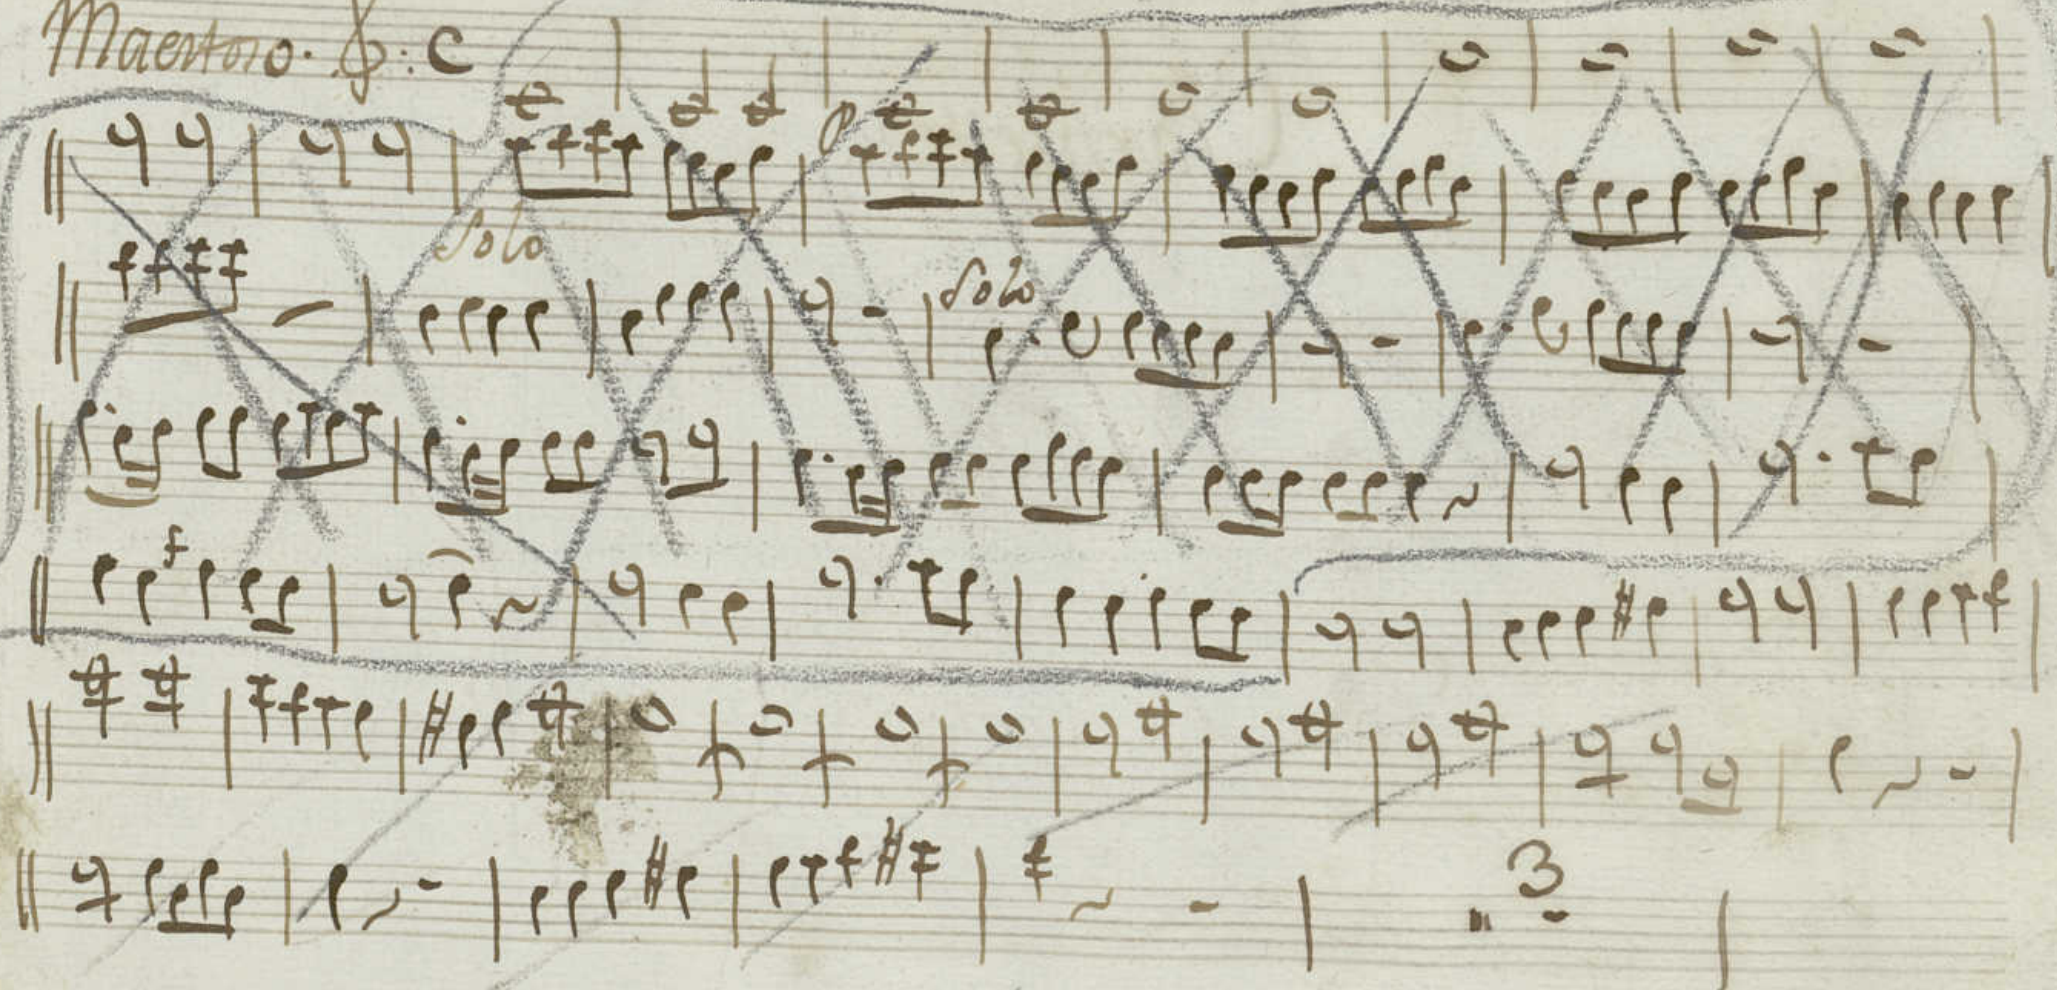 Maestoso.
Solo
Solo
3